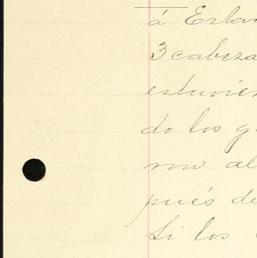 á Esta
3 cabeza
estuvie
do los g
mo al
pués de
Si los